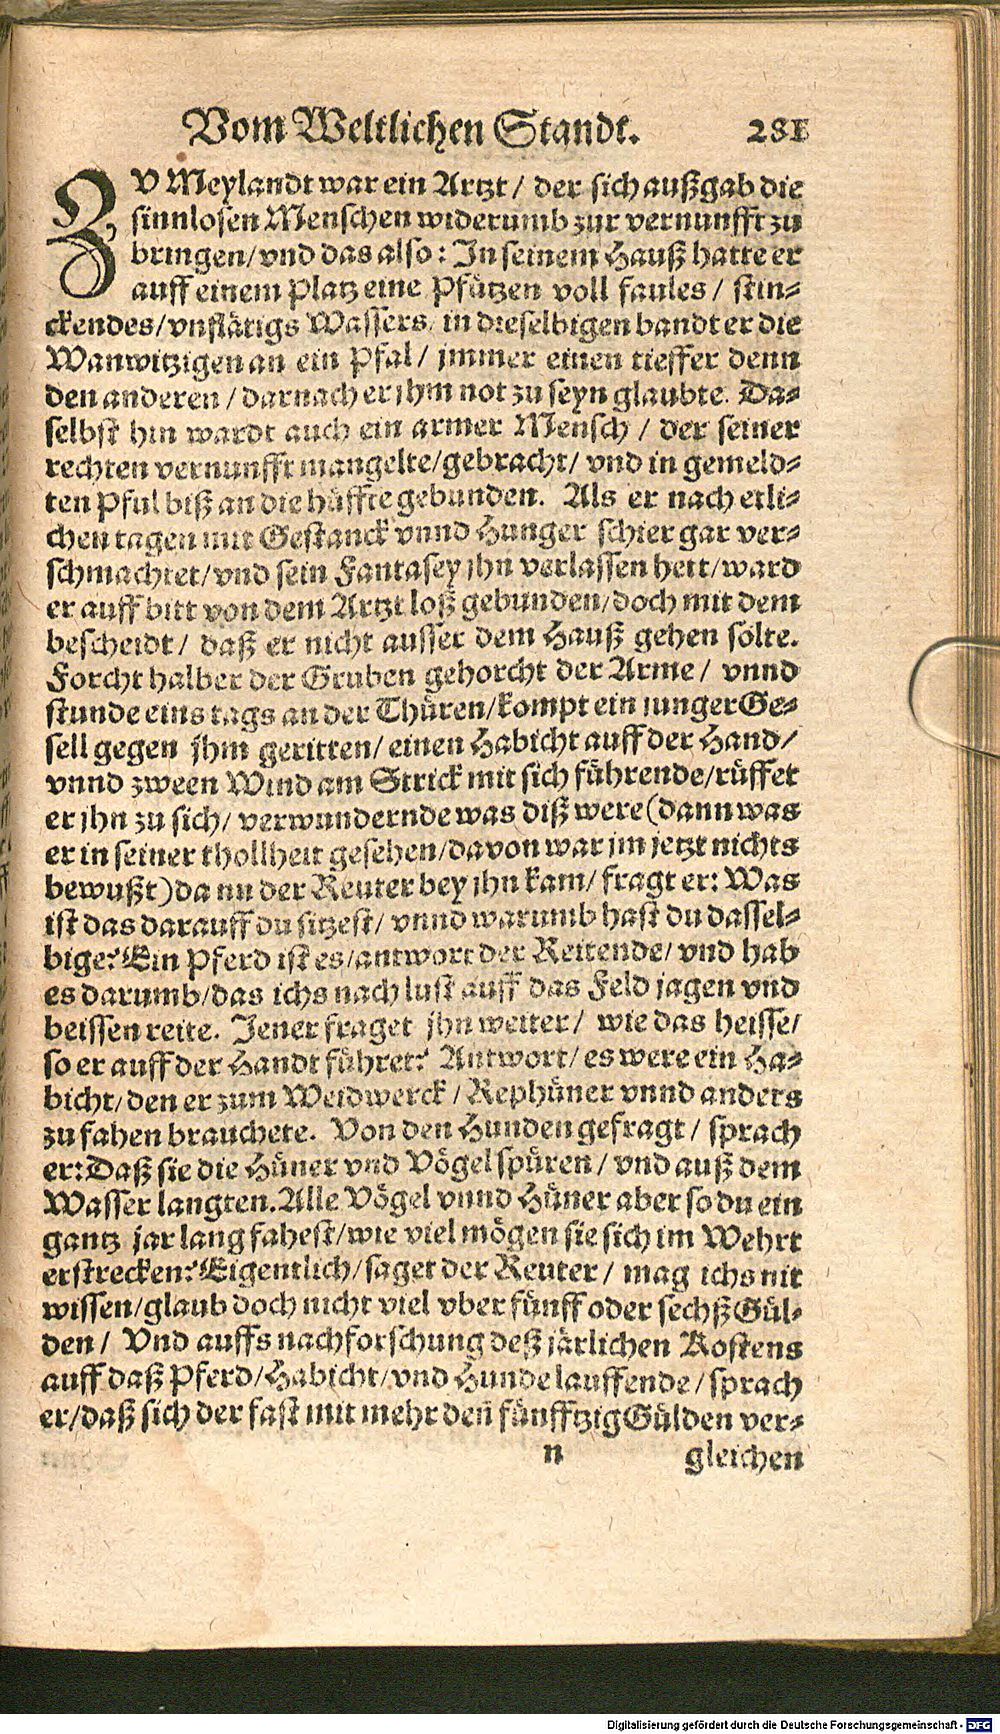 Vom Weltlichen Standt. 281
ZV Meylandt war ein Artzt / der sich außgab die
sinnlosen Menschen widerumb zur vernunfft zu
bringen / vnd das also: In seinem Hauß hatte er
auff einem Platz eine Pfützen voll faules / stin-
ckendes / vnflätigs Wassers, in dieselbigen bandt er die
Wanwitzigen an ein Pfal / jmmer einen tieffer denn
den anderen / darnach er jhm not zu seyn glaubte. Da-
selbst hin wardt auch ein armer Mensch / der seiner
rechten vernunfft mangelte / gebracht / vnd in gemeld-
ten Pful biß an die hüffte gebunden. Als er nach etli-
chen tagen mit Gestanck vnnd Hunger schier gar ver-
schmachtet / vnd sein Fantasey jhn verlassen hett / ward
er auff bitt von dem Artzt loß gebunden / doch mit dem
bescheidt / daß er nicht ausser dem Hauß gehen solte.
Forcht halber der Gruben gehorcht der Arme / vnnd
stunde eins tags an der Thüren / kompt ein junger Ge-
sell gegen jhm geritten / einen Habicht auff der Hand /
vnnd zween Wind am Strick mit sich führende / rüffet
er jhn zu sich / verwundernde was diß were (dann was
er in seiner thollheit gesehen / davon war jm jetzt nichts
bewußt) da nu der Reuter bey jhn kam / fragt er: Was
ist das darauff du sitzest / vnnd warumb hast du dassel-
bige? Ein Pferd ist es / antwort der Reitende / vnd hab
es darumb / das ichs nach lust auff das Feld jagen vnd
beissen reite. Jener fraget jhn weiter / wie das heisse /
so er auff der Handt führet? Antwort / es were ein Ha-
bicht / den er zum Weidwerck / Rephüner vnnd anders
zu fahen brauchete. Von den Hunden gefragt / sprach
er: Daß sie die Hüner vnd Vögel spüren / vnd auß dem
Wasser langten. Alle Vögel vnnd Hüner aber so du ein
gantz jar lang fahest / wie viel mögen sie sich im Wehrt
erstrecken? Eigentlich / saget der Reuter / mag ichs nit
wissen / glaub doch nicht viel vber fünff oder sechß Gül-
den / Vnd auffs nachforschung deß järlichen Kostens
auff daß Pferd / Habicht / vnd Hunde lauffende / sprach
er / daß sich der fast mit mehr deñ fünfftzig Gülden ver-
n gleichen
Digitalisierung gefördert durch die Deutsche Forschungsgemeinschaft - DFG